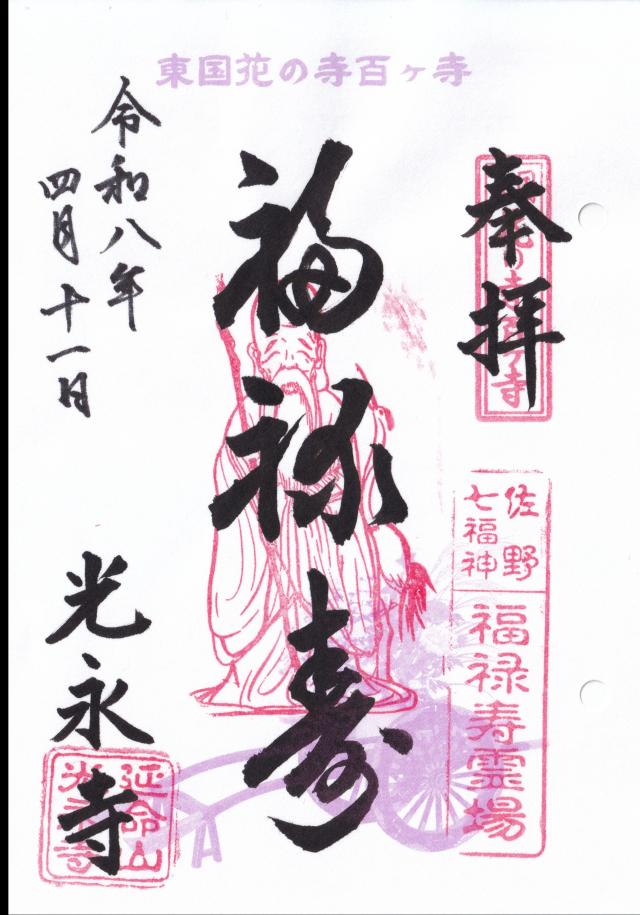 東国花の寺百ヶ寺
奉拝
佐野
七福神
福禄寿霊場
福禄寿
令和八年
四月十一日
光永寺
延命山
光永寺